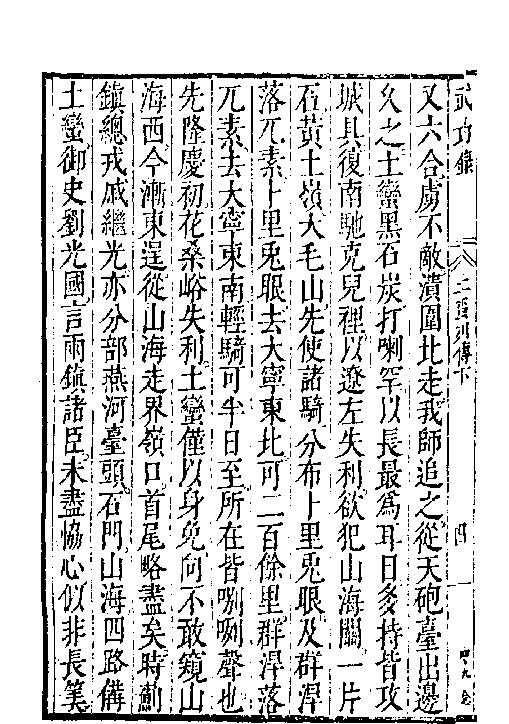 武功錄 土蠻列傳下 四
又六合虜不敵潰圍北走我師追之從天砲臺出邊
久之土蠻黑石炭打喇罕以長最爲耳目多持皆攻
城具復南馳克兒裡以遼左失利欲犯山海關一片
石黃土嶺大毛山先使諸騎分布十里兎眼及群淠
落兀素十里兎眼去大寧東北可二百餘里群淠落
兀素去大寧東南輕騎可半日至所在皆咧咧聲也
先隆慶初花桑峪失利土蠻僅以身免向不敢窺山
海西今漸東逞從山海走界嶺口首尾略盡矣時薊
鎮總戎戚繼光亦分部燕河臺頭石門山海四路備
土蠻御史劉光國言兩鎮諸臣未盡恊心似非長筭